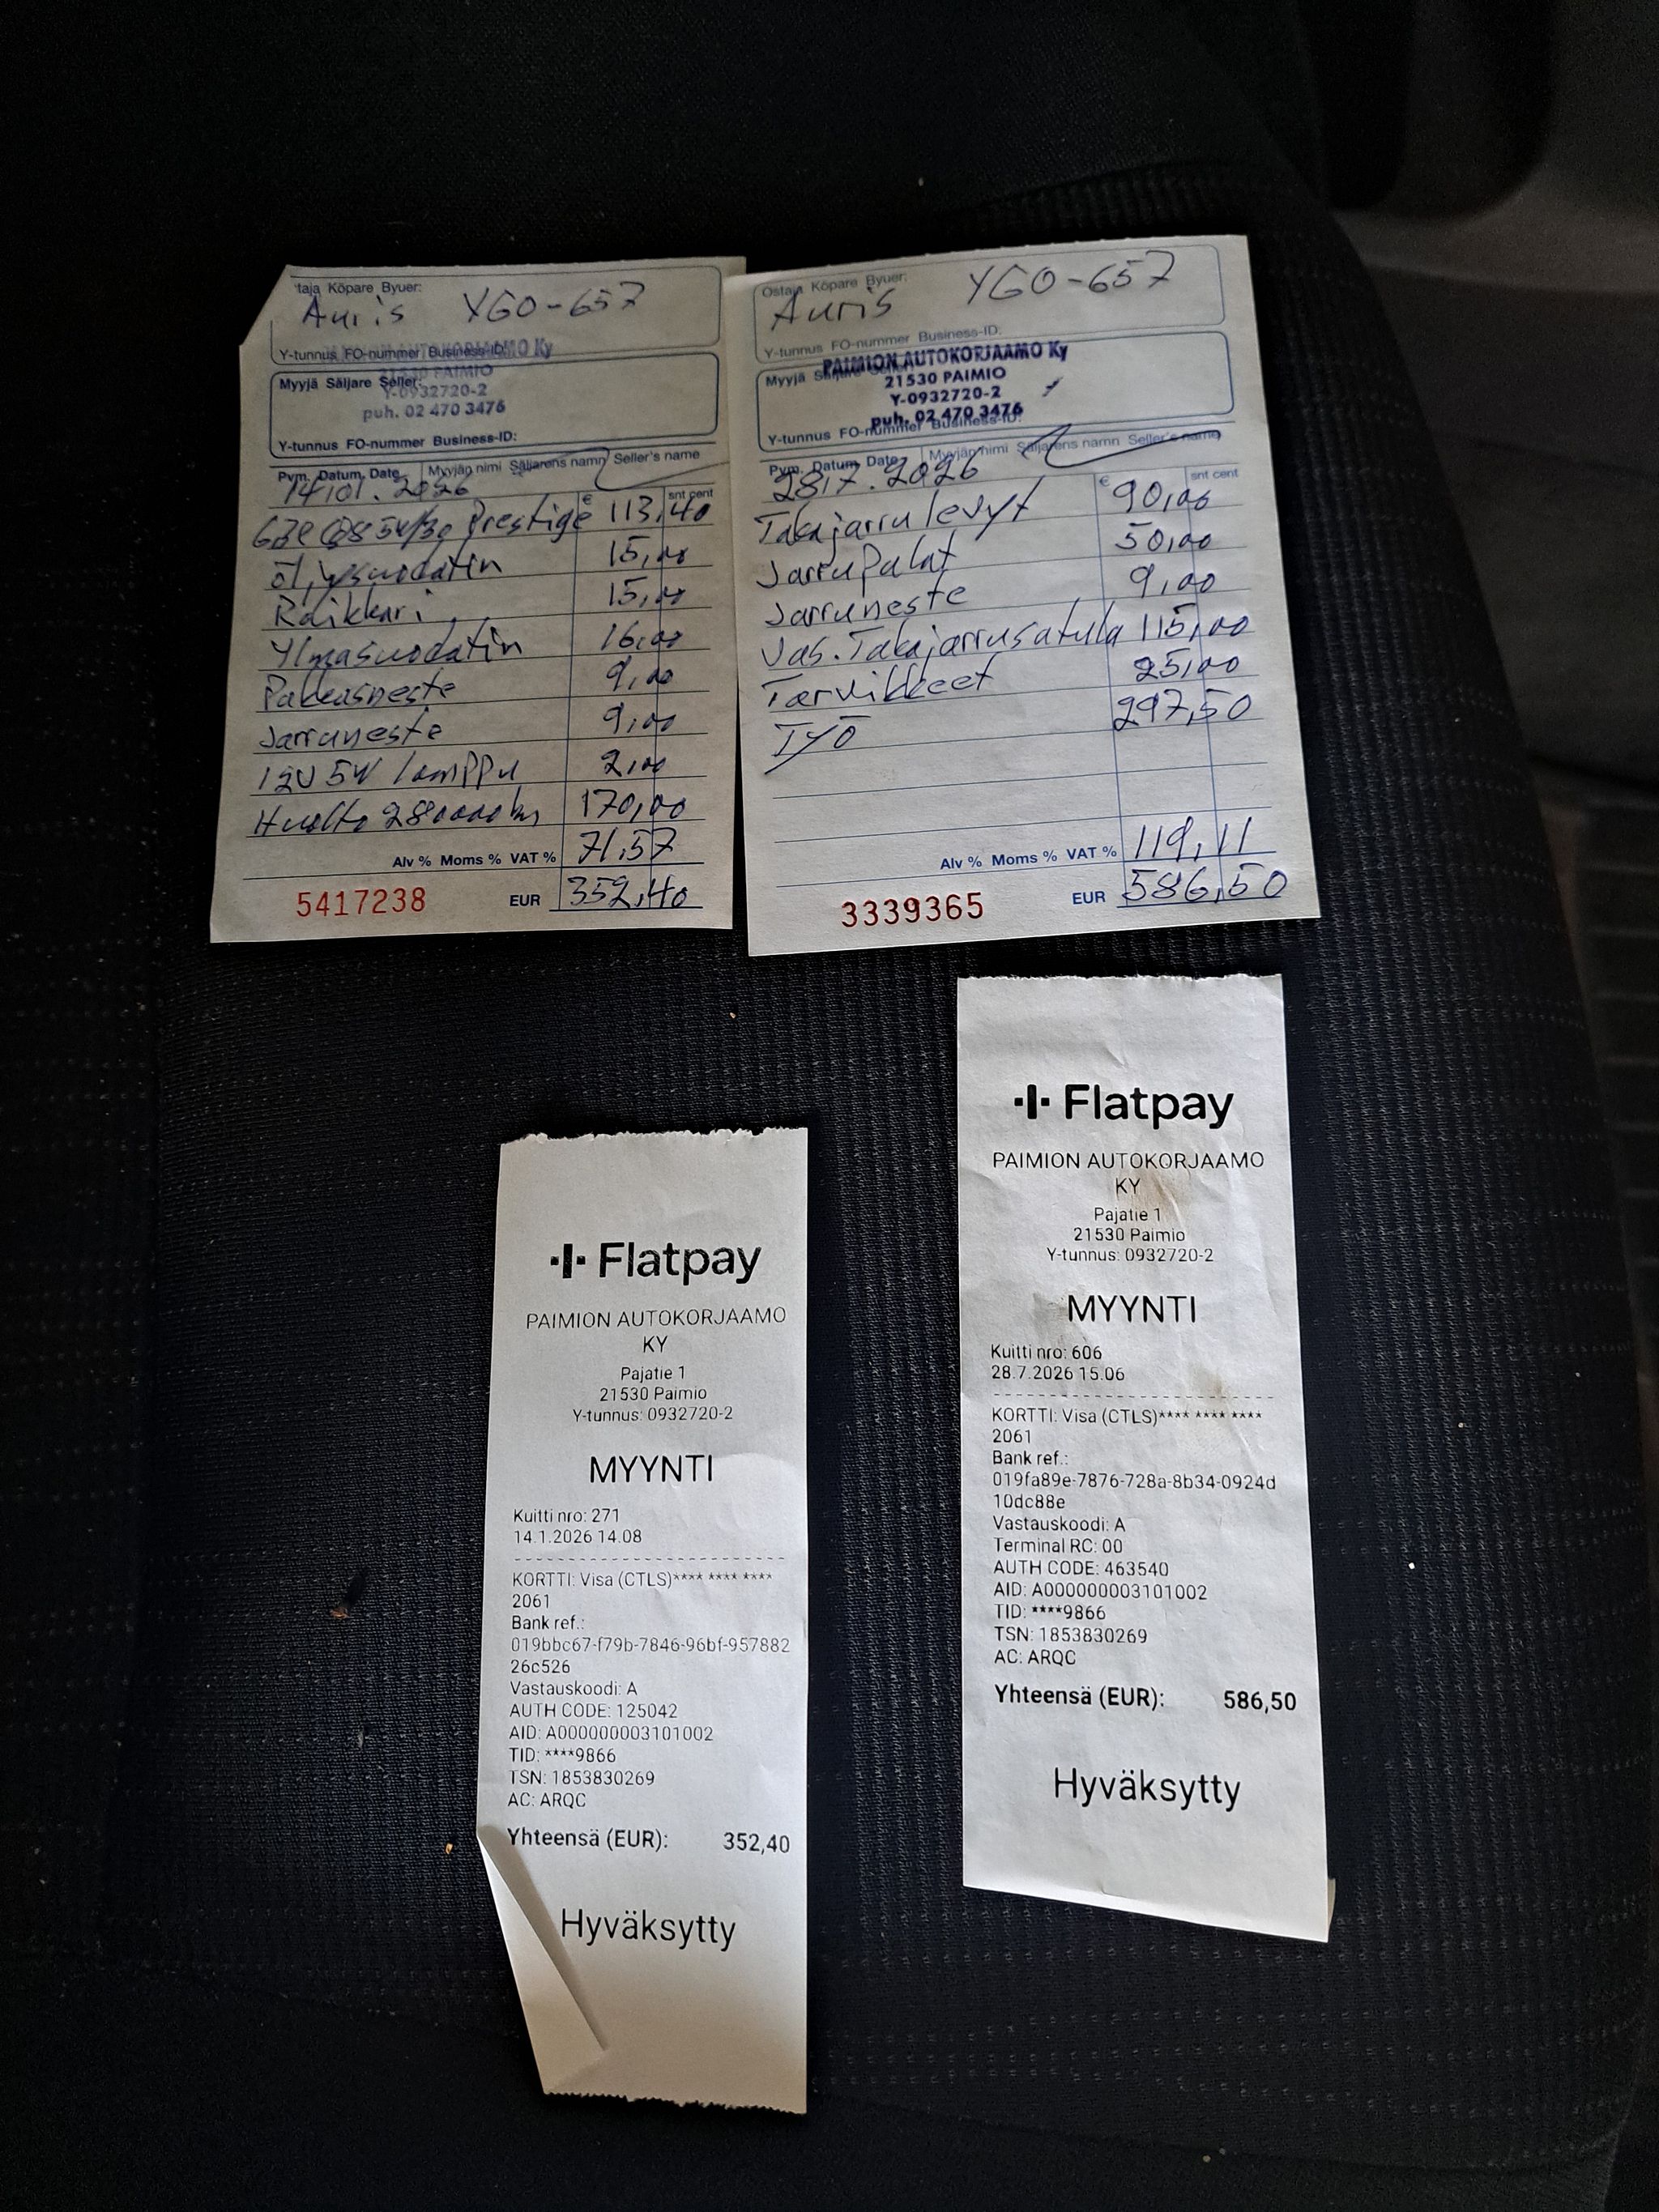 taja Köpare Byuer:
Auris YGO-657
Y-tunnus FO-nummer Business-ID:
Myyjä Säljare Seller:
21530 PAIMIO
Y-0932720-2
puh. 02 470 3476
Y-tunnus FO-nummer Business-ID:
Pvm. Datum. Date Myyjän nimi Säljarens namn Seller's name
14,01.2026
€ snt cent
5W/30 Prestige 113,40
öljysuodatin 15,00
Räikkäri 15,00
Ylmasuodatin 16,00
Pakkasneste 9,00
Jarruneste 9,00
12V 5W lamppu 2,00
Huolto 280000 km 170,00
Alv % Moms % VAT % 71,57
5417238 EUR 352,40
Ostaja Köpare Byuer:
Auris YGO-657
Y-tunnus FO-nummer Business-ID:
PAIMION AUTOKORJAAMO Ky
Myyjä Säljare Seller:
21530 PAIMIO
Y-0932720-2
puh. 02 470 3476
Y-tunnus FO-nummer Business-ID:
Pvm. Datum. Date Myyjän nimi Säljarens namn Seller's name
28,7.2026
€ snt cent
Takajarrulevyt 90,00
Jarrupalat 50,00
Jarruneste 9,00
Vas. Takajarrusatula 115,00
Tarvikkeet 25,00
TYÖ 297,50
Alv % Moms % VAT % 119,11
3339365 EUR 586,50
Flatpay
PAIMION AUTOKORJAAMO
KY
Pajatie 1
21530 Paimio
Y-tunnus: 0932720-2
MYYNTI
Kuitti nro: 271
14.1.2026 14.08
KORTTI: Visa (CTLS)**** **** ****
2061
Bank ref.:
019bbc67-f79b-7846-96bf-957882
26c526
Vastauskoodi: A
AUTH CODE: 125042
AID: A000000003101002
TID: ****9866
TSN: 1853830269
AC: ARQC
Yhteensä (EUR): 352,40
Hyväksytty
Flatpay
PAIMION AUTOKORJAAMO
KY
Pajatie 1
21530 Paimio
Y-tunnus: 0932720-2
MYYNTI
Kuitti nro: 606
28.7.2026 15.06
KORTTI: Visa (CTLS)**** **** ****
2061
Bank ref.:
019fa89e-7876-728a-8b34-0924d
10dc88e
Vastauskoodi: A
Terminal RC: 00
AUTH CODE: 463540
AID: A000000003101002
TID: ****9866
TSN: 1853830269
AC: ARQC
Yhteensä (EUR): 586,50
Hyväksytty